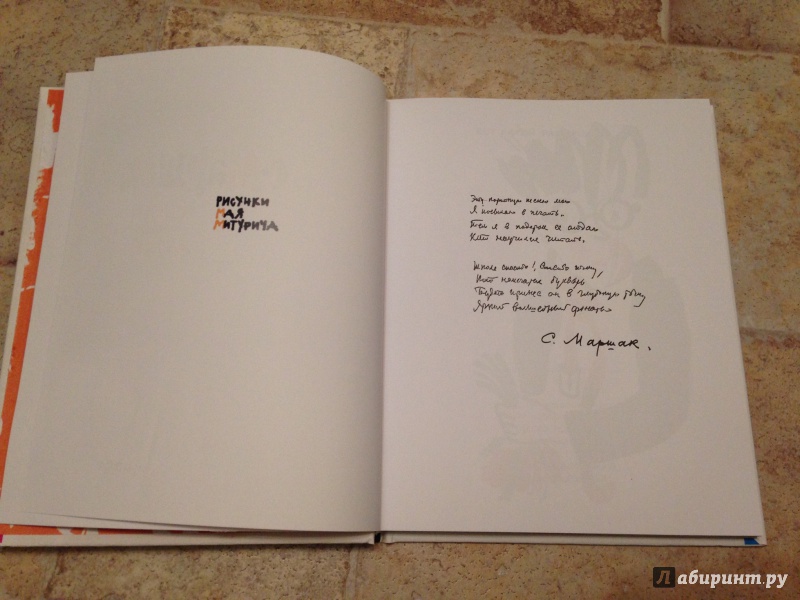 РИСУНКИ
МАЯ
МИТУРИЧА
Эту короткую песню мою
Я посылаю в печать.
Тем я в подарок её отдаю,
Кто научился читать.
Школе спасибо! Спасибо тому,
Кто напечатал букварь
Будто принёс он в глубокую тьму
Яркий волшебный фонарь.
С. Маршак.
Лабиринт.ру